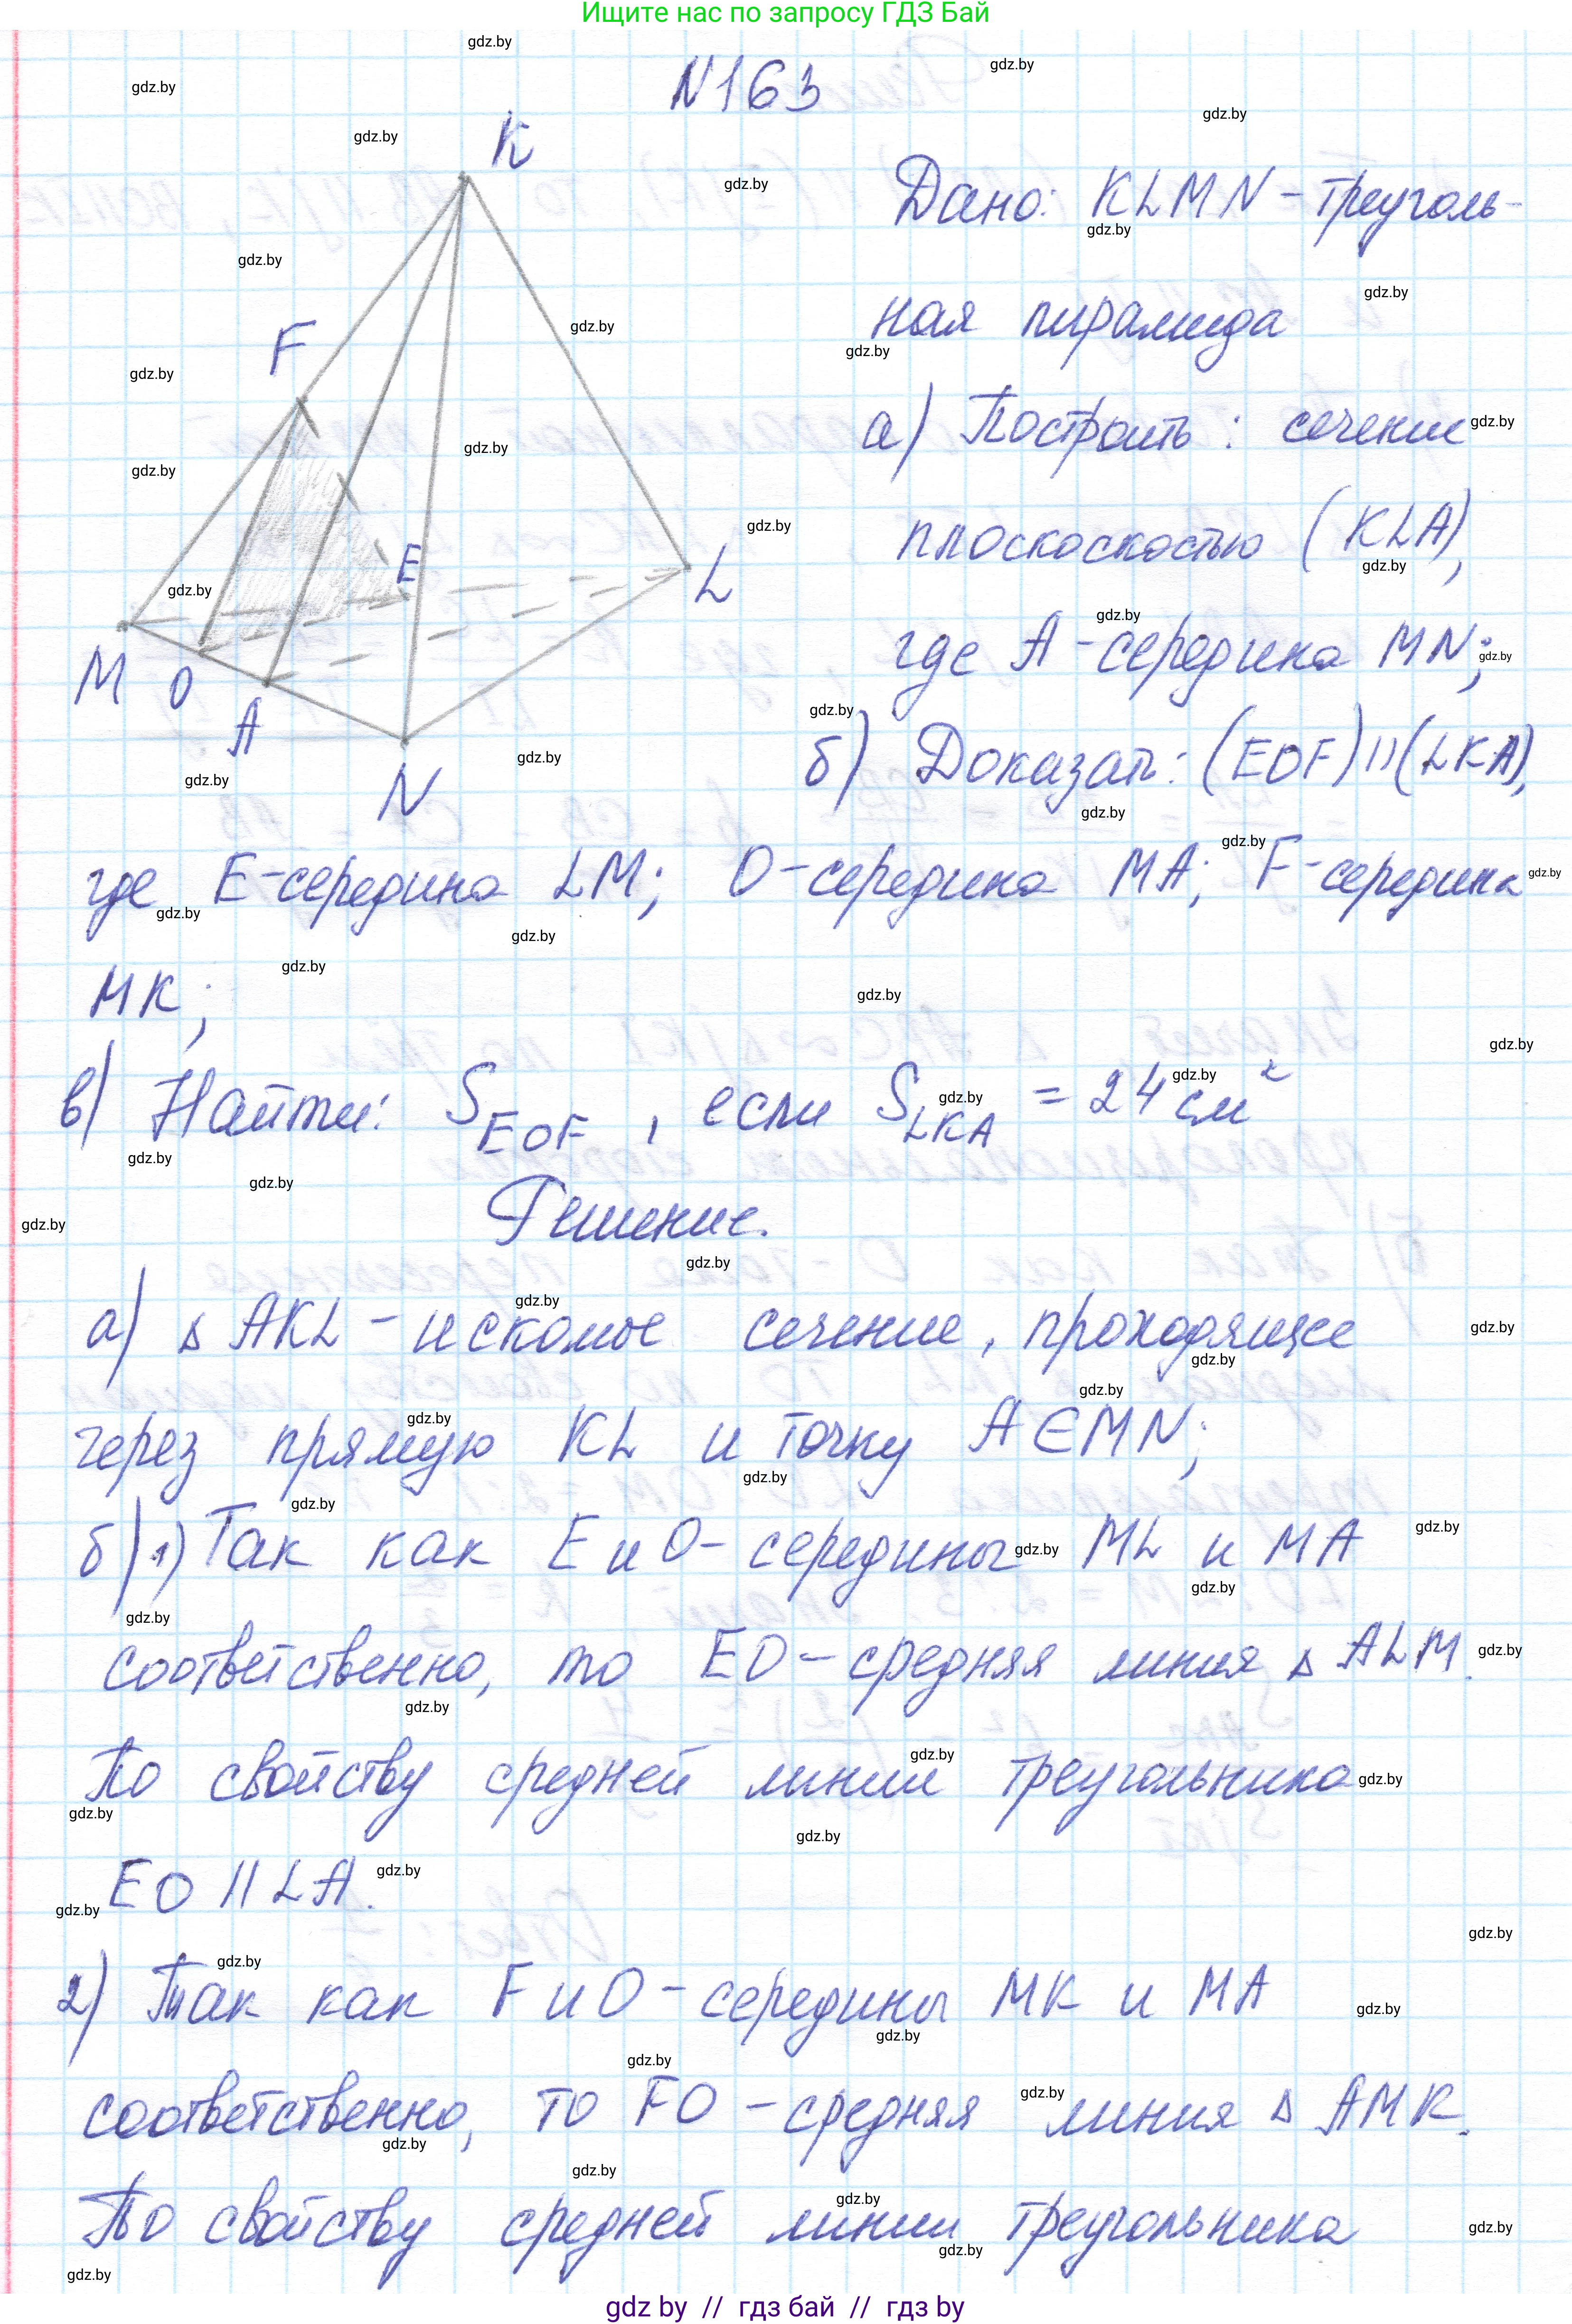 Ищите нас по запросу ГДЗ Бай
N163
K
F
E
L
M
O
A
N
Дано: KLMN - треуголь-
ная пирамида
а) Построить: сечение
плоскоскостью (KLA),
где A - середина MN;
б) Доказать: (EOF) || (LKA),
где E - середина LM; O - середина MA; F - середина
MK;
в) Найти: S EOF, если S LKA = 24 см²
Решение.
а) △ AKL - искомое сечение, проходящее
через прямую KL и точку A ∈ MN;
б) 1) Так как E и O - середины ML и MA
соответственно, то EO - средняя линия △ ALM.
По свойству средней линии треугольника
EO || LA.
2) Так как F и O - середины MK и MA
соответственно, то FO - средняя линия △ AMK.
По свойству средней линии треугольника
gdz by // гдз бай // гдз by